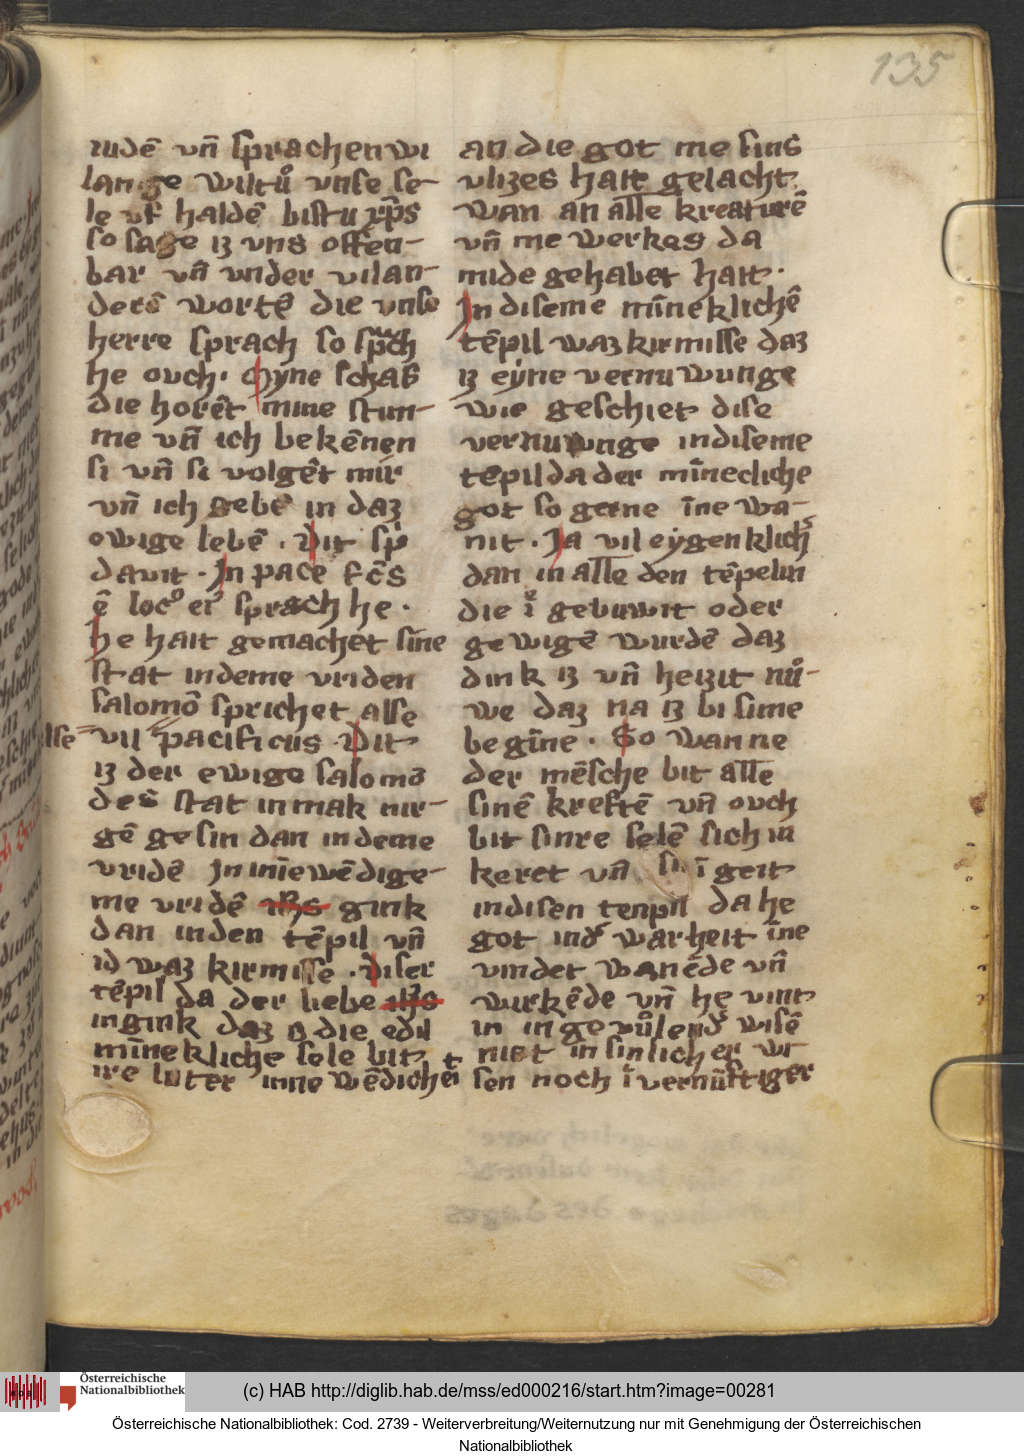 135
iudē vn̄ sprachen wi
lange wiltuͦ vnse se-
le vf haldē bistu xp̄s
so sage iz vns offen-
bar vn̄ vnder vilan-
ders wortē die vnse
herre sprach so sp̄ch
he ouch. Myne schaf
die horēt mine stim-
me vn̄ ich bekēnen
si vn̄ si volgēt mir
vn̄ ich gebe in daz
ewige lebē. Dit sp̄
dauit. In pace fc̄s
ē locꝰ eiꝰ sprach he.
he hait gemachet sine
stat indeme vriden
salomō sprichet alse
vil alse pacificus. Dit
iz der ewige salomō
des stat inmak nir-
gē gesin dan indeme
vridē In inīewēdige-
me vridē ihs gink
dan inden tēpil vn̄
id waz kirmisse. Diser
tēpil da der liebe ihs
ingink daz is die edil
mīnekliche sele bit
ire luter inne wēdicheit
an die got me sins
vlizes hait gelacht
wan an alle kreaturē
vn̄ me werkes da
mide gehabet hait.
In diseme mīneklichē
tēpil waz kirmisse daz
iz eyne vernuwunge
wie geschiet dise
vernuwnge indiseme
tēpil da der mīnecliche
got so gerne īne wa-
nit. Ja vil eygenklich
dan in alle den tēpelin
die ī gebuwit oder
gewigē wurdē daz
dink iz vn̄ heizit nuͦ-
we daz na iz bi sime
begīne. So wanne
der mēsche bit alle
sinē kreftē vn̄ ouch
bit sinre selē sich in
keret vn̄ sin ī geit
indisen tenpil da he
got ind warheit īne
vindet wanēde vn̄
wurkēde vn̄ he vint
in in geuuͦlend wisē
niet in sinlicher wi
sen noch ī vernūftiger
Österreichische
Nationalbibliothek
(c) HAB http://diglib.hab.de/mss/ed000216/start.htm?image=00281
Österreichische Nationalbibliothek: Cod. 2739 - Weiterverbreitung/Weiternutzung nur mit Genehmigung der Österreichischen
Nationalbibliothek